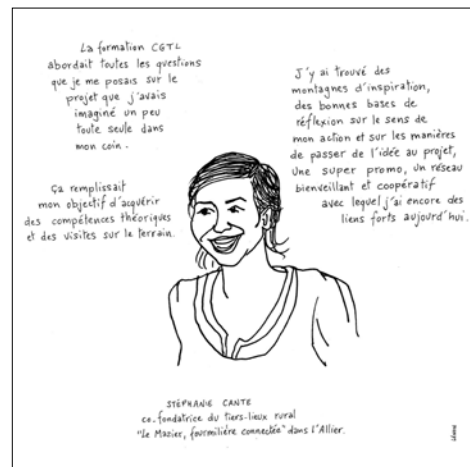 La formation CGTL
abordait toutes les questions
que je me posais sur le
projet que j'avais
imaginé un peu
toute seule dans
mon coin.
Ça remplissait
mon objectif d'acquérir
des compétences théoriques
et des visites sur le terrain.
J'y ai trouvé des
montagnes d'inspiration,
des bonnes bases de
réflexion sur le sens de
mon action et sur les manières
de passer de l'idée au projet,
une super promo, un réseau
bienveillant et coopératif
avec lequel j'ai encore des
liens forts aujourd'hui.
STÉPHANIE CANTE
co-fondatrice du tiers-lieux rural
"Le Mazier, fourmilière connectée" dans l'Allier.